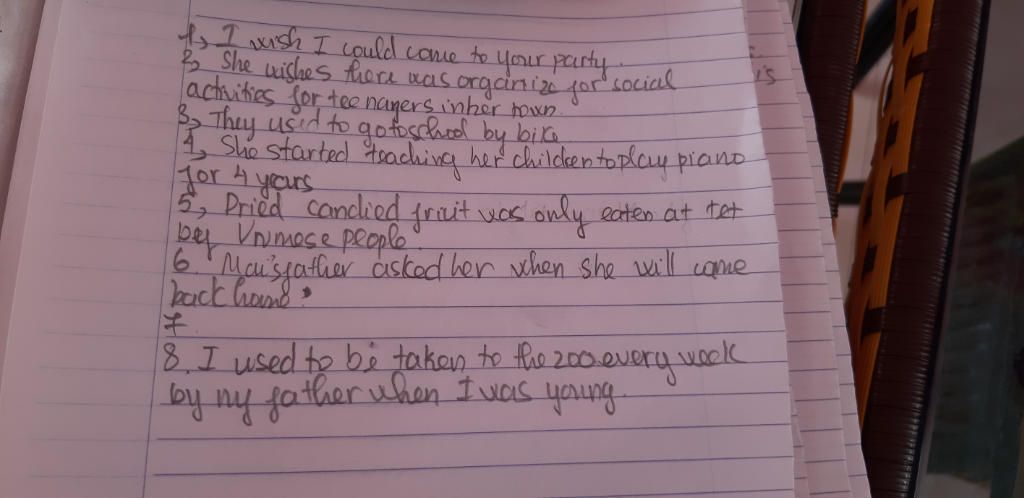 1, I wish I could come to your party.
2, She wishes there was organize for social
activities for teenagers in her town.
3, They used to go to school by bike
4, She started teaching her children to play piano
for 4 years
5, Dried candied fruit was only eaten at tet
by Vnmese people.
6. Mai's father asked her when she will come
back
7.
8. I used to be taken to the zoo every week
by my father when I was young.
is